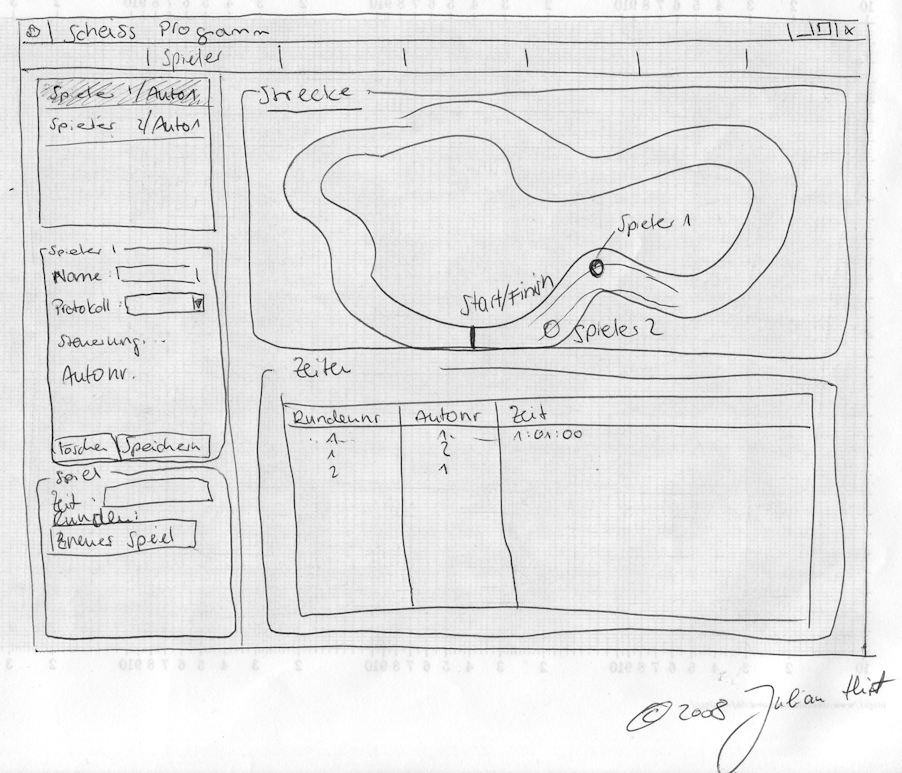 Scheiss Programm
Spieler
Spieler 1/Auto1
Spieler 2/Auto1
Spieler 1
Name:
Protokoll:
Steuerung...
Autonr.
Löschen Speichern
Spiel
Zeit:
Runden:
neues Spiel
Strecke
Spieler 1
Start/Finish
Spieler 2
Zeiten
Rundennr Autonr Zeit
1 1 1:01:00
1 2
2 1
© 2008 Julian